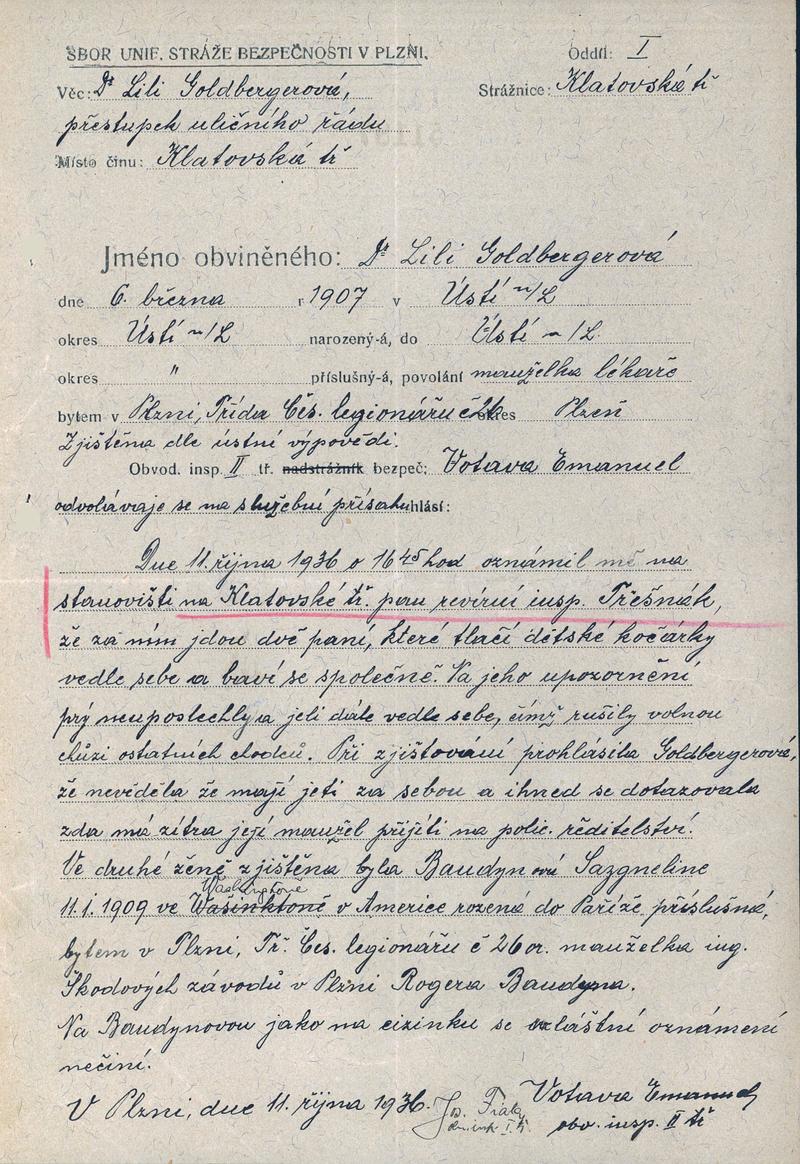 SBOR UNIF. STRÁŽE BEZPEČNOSTI V PLZNI. Oddíl: I
Věc: Dr Lili Goldbergerová, Strážnice: Klatovská tř
přestupek uličního řádu
Místo činu: Klatovská tř
Jméno obviněného: Dr Lili Goldbergerová
dne 6. března r 1907 v Ústí n/L
okres Ústí n/L narozený-á, do Ústí n/L.
okres " příslušný-á, povolání manželka lékaře
bytem v Plzni, Třída Čs. legionářu č 24 okres Plzeň
Zjištěna dle ústní výpovědi.
Obvod. insp. II tř. nadstrážník bezpeč: Votava Emanuel
odvolávaje se na služební přísahu hlásí:
Dne 11. října 1936 o 16 45 hod oznámil mě na
stanovišti na Klatovské tř. pan revírní insp. Třešnák,
že za ním jdou dvě paní, které tlačí dětské kočárky
vedle sebe a baví se společně. Na jeho upozornění
prý neuposlechly a jeli dále vedle sebe, čímž rušily volnou
chůzi ostatních chodců. Při zjištování prohlásila Goldbergerová,
že nevěděla že mají jeti za sebou a ihned se dotazovala
zda má zítra její manžel přijíti na polic. ředitelství.
Ve druhé ženě zjištěna byla Baudynová Sazgneline
Washingtoně
11.I.1909 ve Wašinktoně v Americe rozená do Paříže příslušná,
bytem v Plzni, Tř. Čes. legionářu č 26 or. manželka ing.
Škodových závodů v Plzni Rogera Baudyna.
Na Baudynovou jako na cizinku se zvláštní oznámení
nečiní.
V Plzni, dne 11. října 1936. Jos. Fiala Votava Emanuel
I. tř. obv. insp. II tř